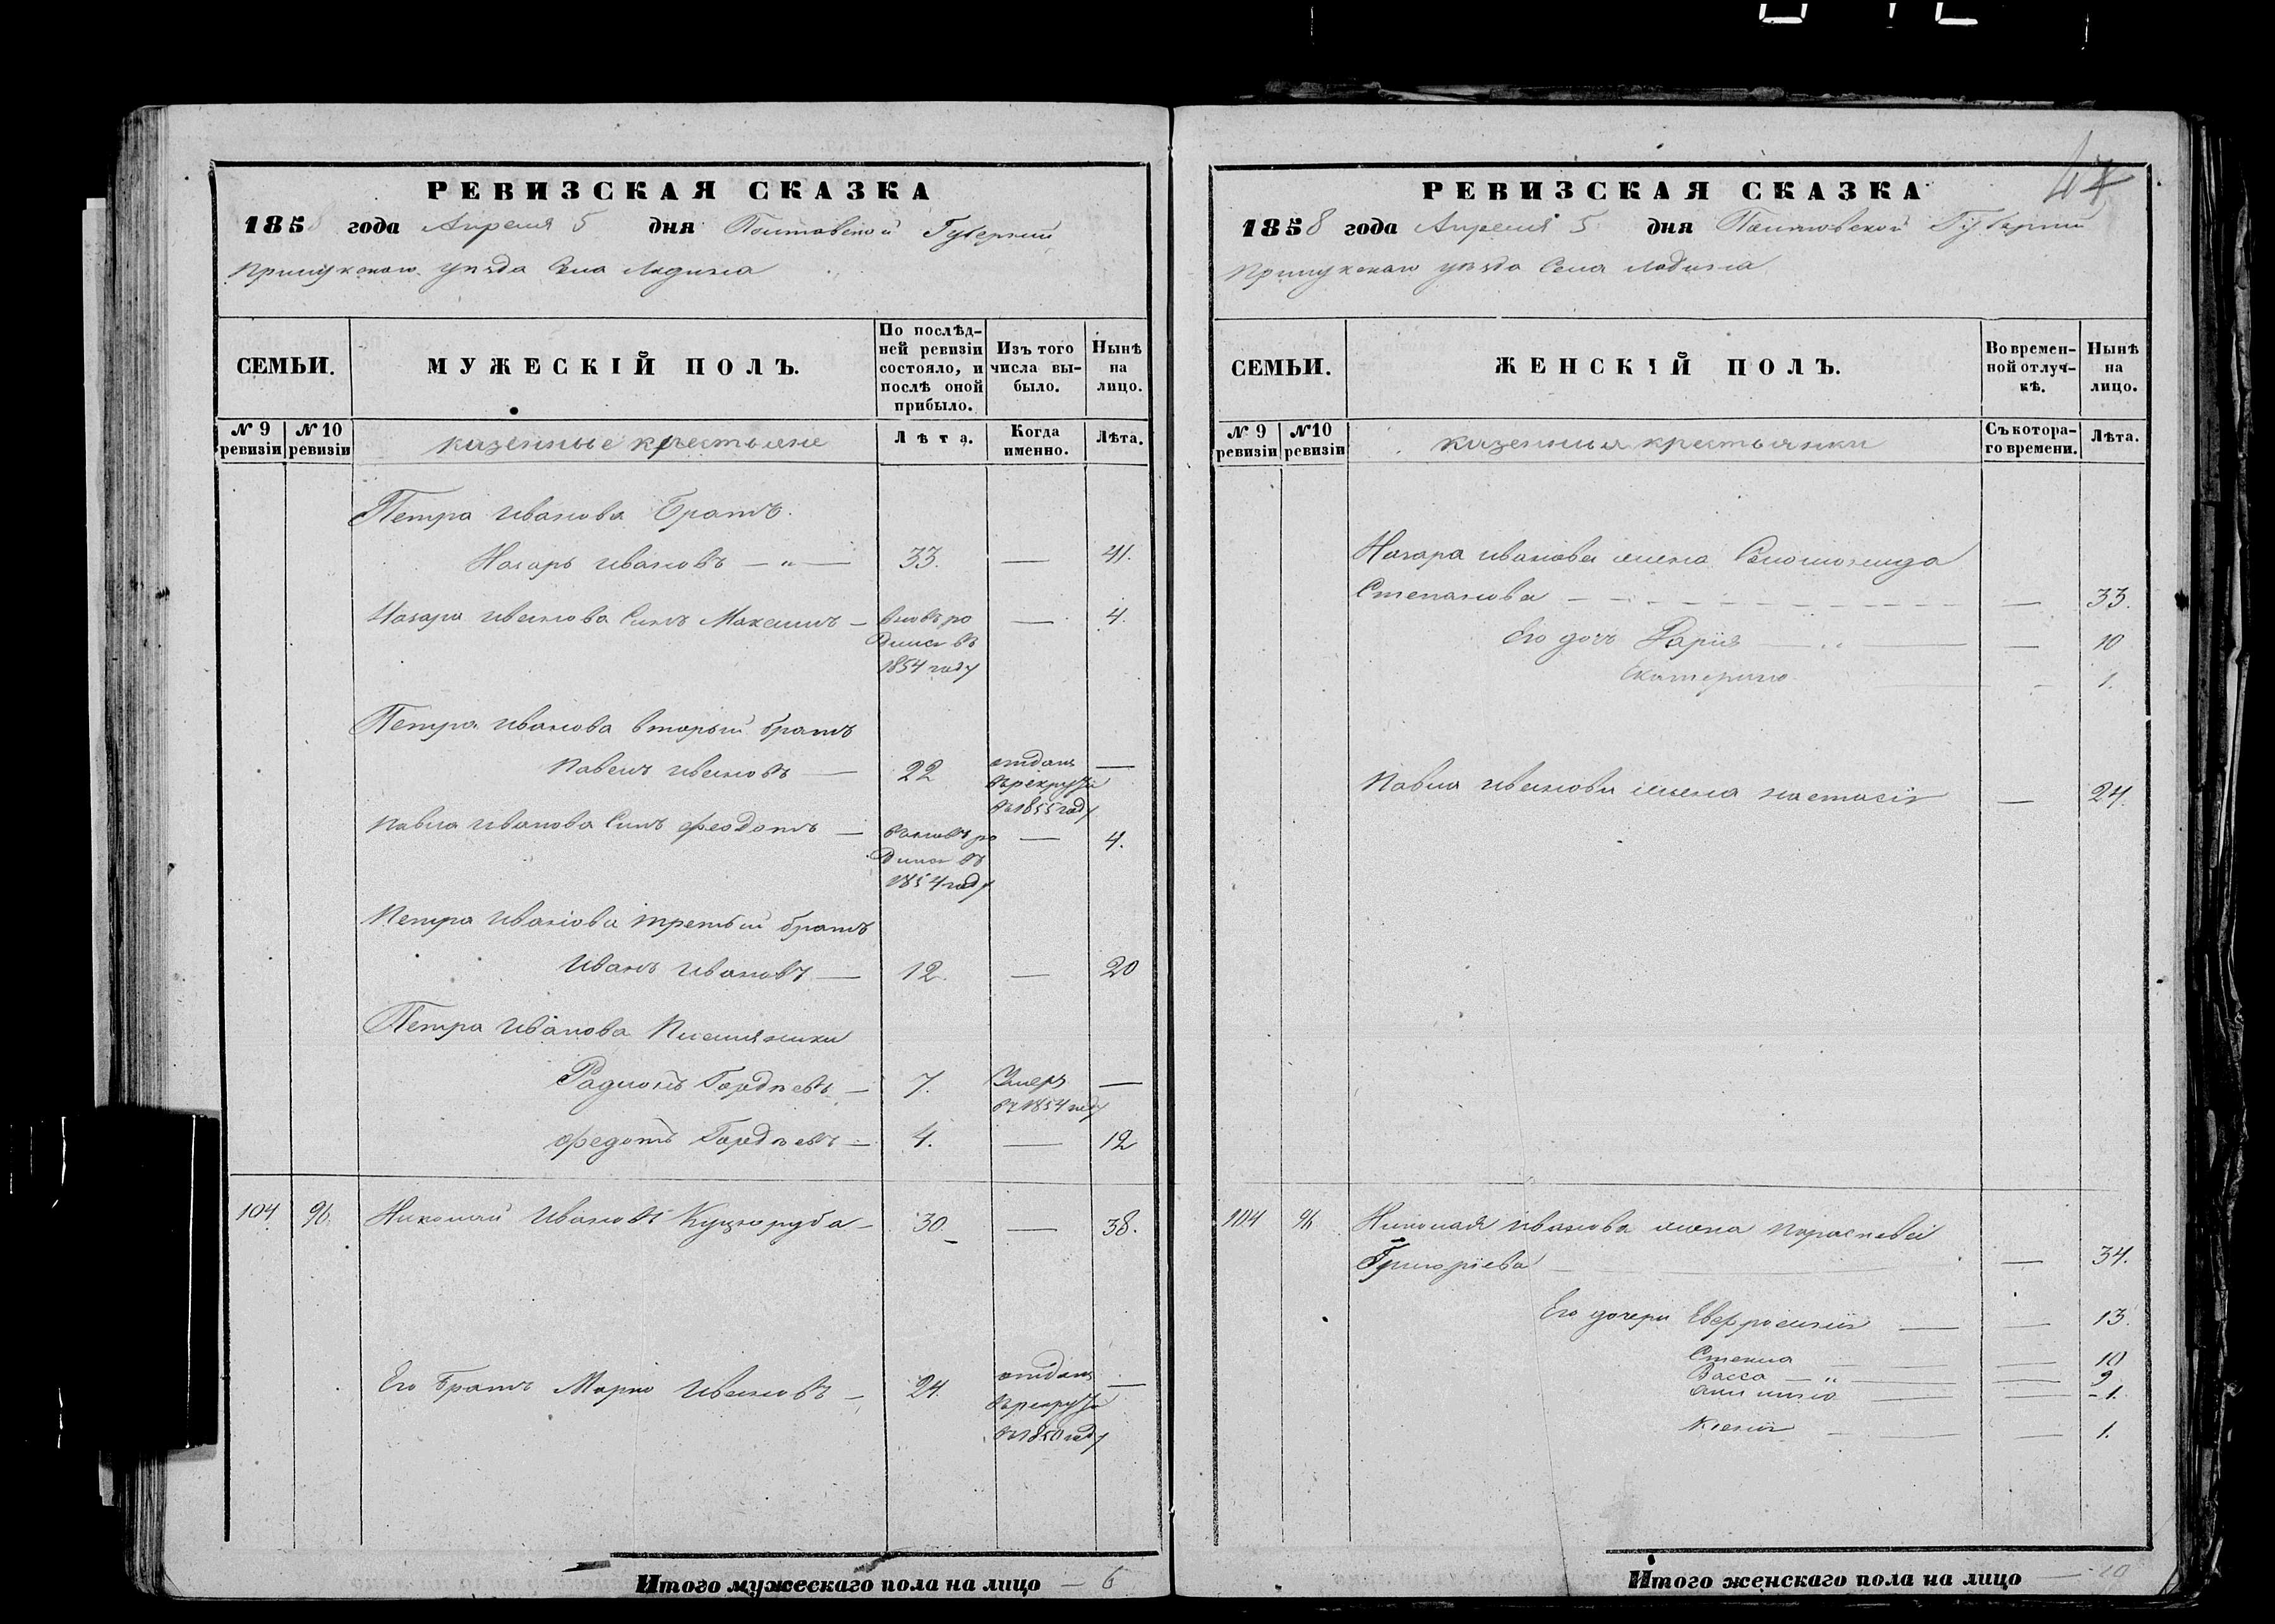 47
РЕВИЗСКАЯ СКАЗКА
1858 года Апреля 5 дня Полтавской Губернии
Прилукскаго уѣзда Села Ладина
СЕМЬИ.
МУЖЕСКІЙ ПОЛЪ.
По послѣд-
ней ревизіи
состояло, и
послѣ оной
прибыло.
Изъ того
числа вы-
было.
Нынѣ
на
лицо.
№ 9
ревизіи
№ 10
ревизіи
казенные крестьяне
Лѣта.
Когда
именно.
Лѣта.
Петра Иванова Братъ.
Назаръ Ивановъ — " — 33. — 41.
Назара Иванова Сынъ Максимъ — вновь ро — 4.
дился въ
1854 году
Петра Иванова вторый братъ
Павелъ Ивановъ — 22 отданъ —
въ рекруты
въ 1855 году
Павла Иванова Сынъ Феодотъ — вновь ро — 4.
дился въ
1854 году
Петра Иванова третьій братъ
Иванъ Ивановъ — 12. — 20
Петра Иванова Племяники
Радионъ Гордѣевъ — 7. Умеръ —
въ 1854 году
Федотъ Гордѣевъ — 4. — 12
104 96 Николай Ивановъ Куцоруба — 30 — 38.
Его Братъ Марко Ивановъ — 24. отданъ —
въ рекруты
въ 1850 году
Итого мужескаго пола на лицо — 6
РЕВИЗСКАЯ СКАЗКА
1858 года Апреля 5 дня Полтавской Губернии
Прилукскаго уѣзда Села Ладина
СЕМЬИ.
ЖЕНСКІЙ ПОЛЪ.
Во времен-
ной отлуч-
кѣ.
Нынѣ
на
лицо.
№ 9
ревизіи
№10
ревизіи
казенныя крестьянки
Съ котора-
го времени.
Лѣта.
Назара Иванова жена Соломонида
Степанова — — 33.
Его доч Дарія — " — — 10
Екатерина — 1.
Павла Иванова жена Настасія — 24.
104 96 Николая Иванова жена Параскевія
Григоріева — — 34.
Его дочери Евфросинія — — 13.
Стекла — — 10
Васса — " — — 9
— — 1.
Ксенія — — 1.
Итого женскаго пола на лицо — 10